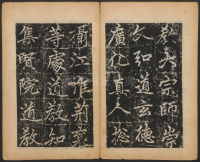 教大宗師崇
文弘道玄德
廣化真人揔
攝江淮荊襄
等處道教知
集賢院道教